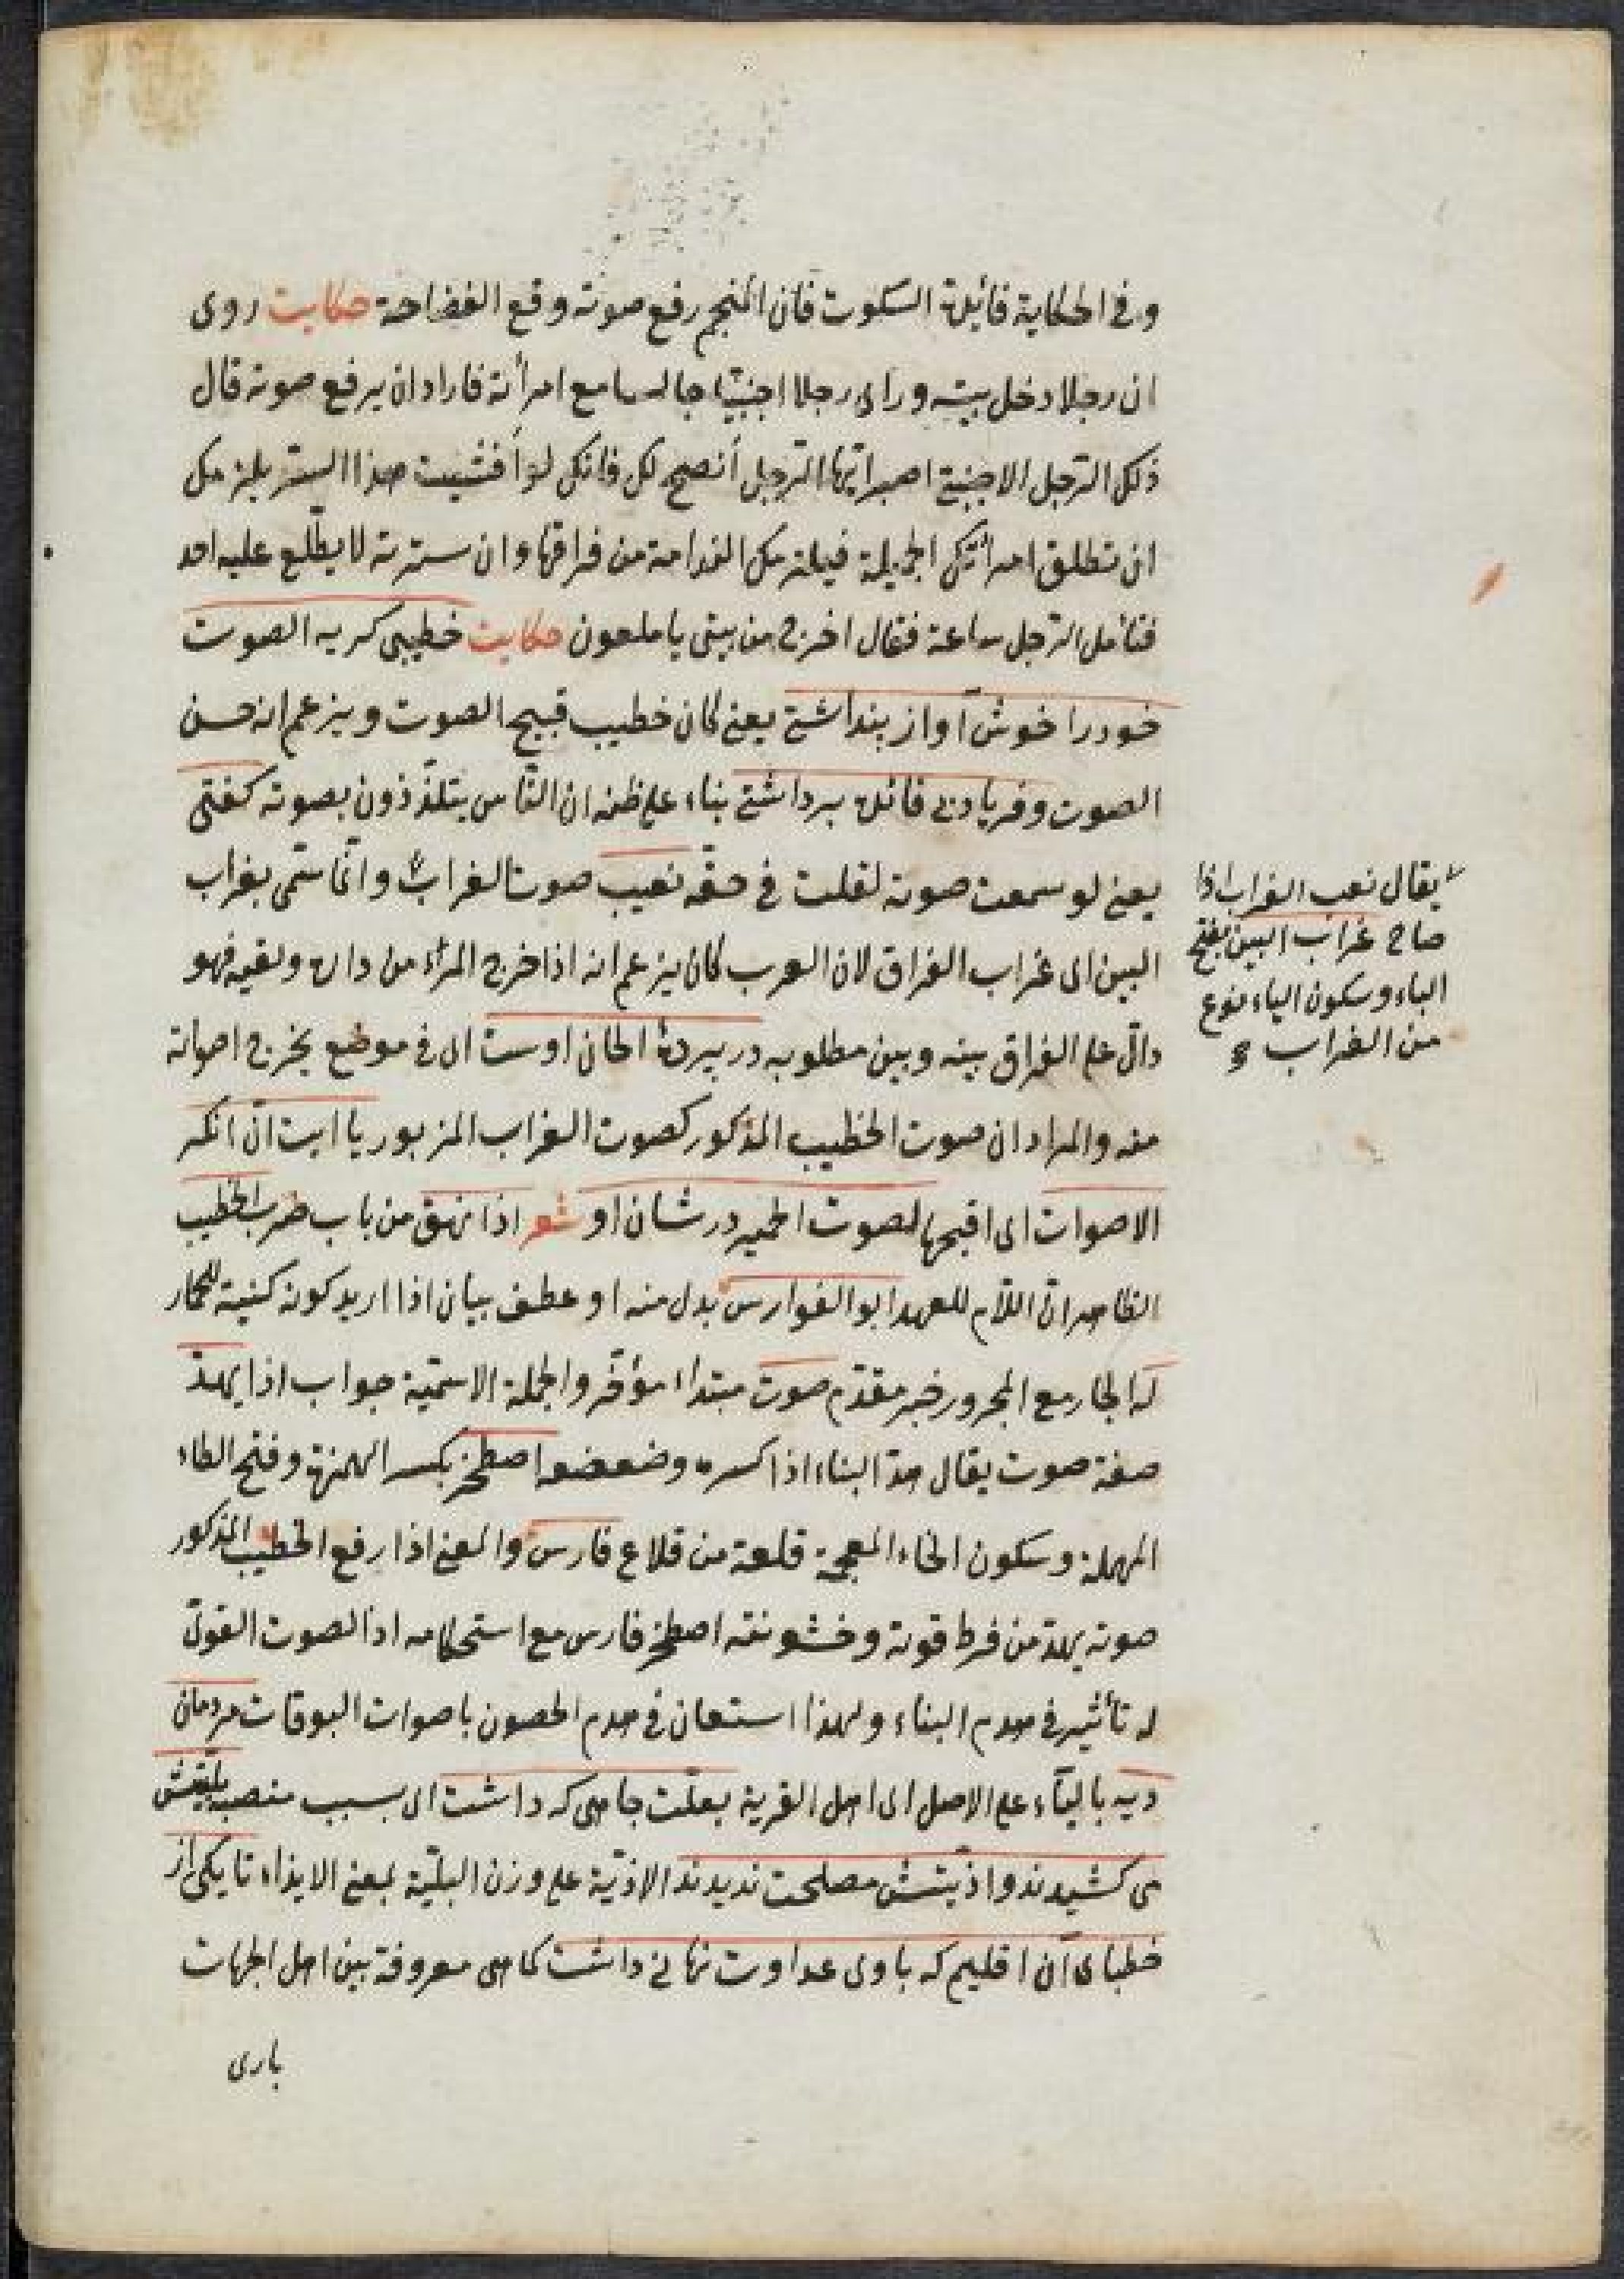 وفى الحكاية فائدة السكوت فان المنجم رفع صوته وقع الفضاحة حكايت روى
ان رجلا دخل بيته وراى رجلا اجنبيّا جالسا مع امرأته فاراد ان يرفع صوته قال
ذلك الرّجل الاجنبىّ اصبر ايّها الرّجل أنصح لك فانك لو أفشيت هذا السّتر يلزمك
ان تطلق امرأتك الجميلة فيلزمك الندامة من فراقها وان سترته لا يطّلع عليه احد
فتأمل الرّجل ساعة فقال اخرج من بيتى يا ملعون حكايت خطيبى كريه الصوت
خودرا خوش آواز پنداشتى يعنى كان خطيب قبيح الصوت ويزعم انه حسن
الصوت وفرياد بى فائده برداشتى بناء على ظنه ان النّاس يتلذّذون بصوته كفتى
يعنى لو سمعت صوته لقلت فى حقّه نعيب صوت الغراب وانّما سمّى بغراب
البين اى غراب الفراق لان العرب كان يزعم انه اذا خرج المرأ من داره ولقيه فهو
دالّ على الفراق بينه وبين مطلوبه در پردۀ الحان اوست اى فى موضع يخرج اصواته
منه والمراد ان صوت الخطيب المذكور كصوت الغراب المزبور يا ايت انّ انكر
الاصوات اى اقبحها لصوت الحمير در شان او شعر اذا نهق من باب ضرب الخطيب
الظاهر انّ اللّام للعهد ابو الفوارس بدل منه او عطف بيان اذا اريد كونه كنية للحمار
له الجار مع المجرور خبر مقدّم صوت مبتداء مؤخّر والجملة الاسميّة جواب اذا يهدّ
صفة صوت يقال هدّ البناء اذا كسره وضعضعه اصطخر بكسر الهمزة وفتح الطاء
المهملة وسكون الخاء المعجمة قلعة من قلاع فارس والمعنى اذا رفع الخطيب المذكور
صوته يهدّ من فرط قوته وخشونته اصطخر فارس مع استحكامه اذ الصوت القوىّ
له تأثير فى هدم البناء ولهذا استعان فى هدم الحصون باصوات البوقات مردمان
ديه بالياء على الاصل اى اهل القرية بعلّت جاهى كه داشت اى بسبب منصبه بليّتش
مى كشيدند واذيّتش مصلحت نديدند الاذيّة على وزن البليّة بمعنى الايذاء تا يكى از
خطباى آن اقليم كه باوى عداوت نهانى داشت كاهى معروفة بين اهل الجهات
بارى
يقال نعب الغراب اذا
صاح غراب البين بفتح
الباء وسكون الياء نوع
من الغراب